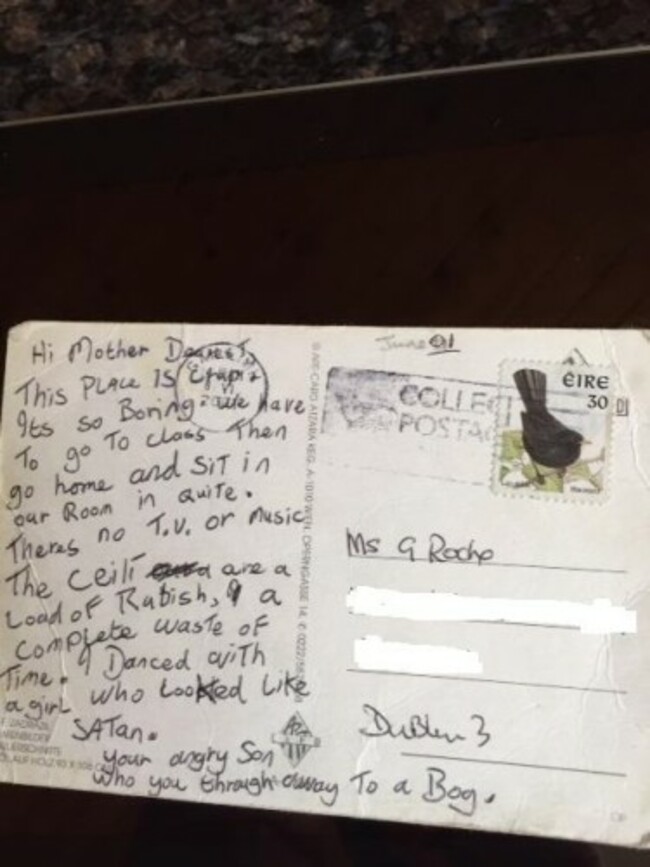 Hi Mother Dearest,
This Place is Crap
Its so Boring. we have
To go To class Then
go home and SiT in
our Room in quite.
Theres no T.V. or Music
The Ceilí are a
Load of Rubish, a
complete waste of
Time. I Danced with
a girl who looked Like
SATan.
your angry Son
who you through away To a Bog.
June 01
COLLECT
POSTAG
ÉIRE
30
Ms G Roche
Dublin 3